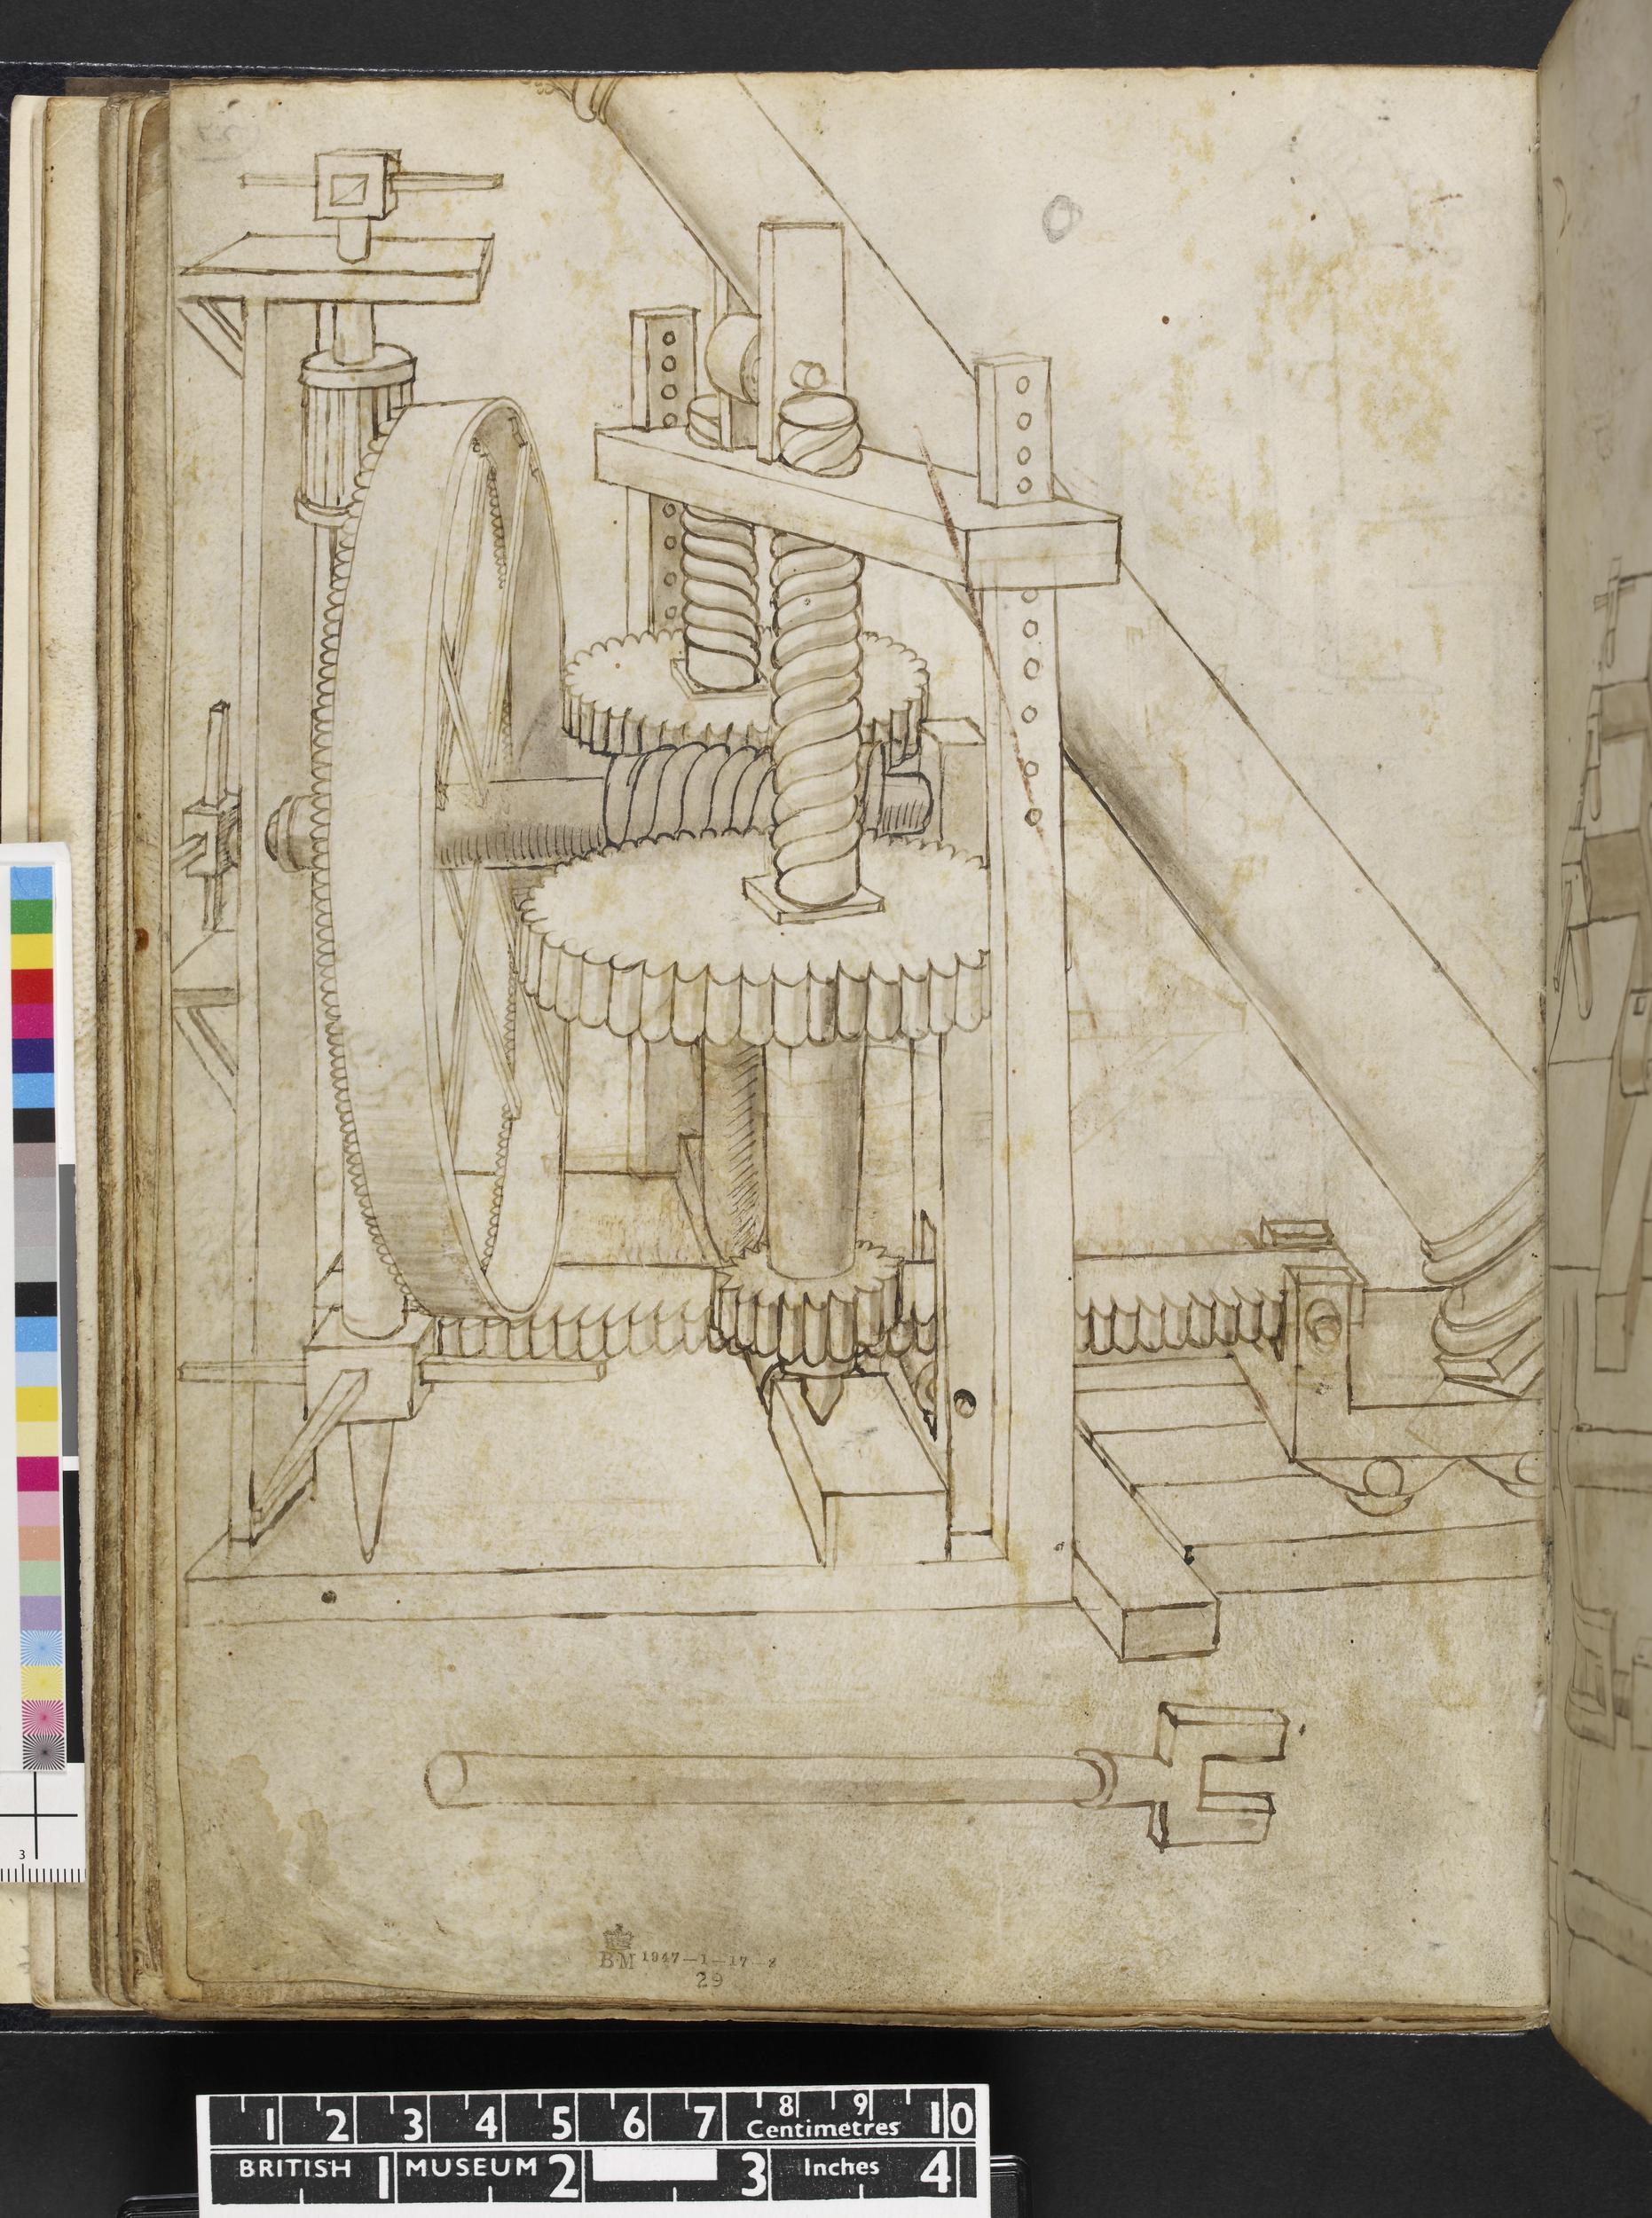 3
B·M 1947–1–17–2
29
1 2 3 4 5 6 7 8 9 10
Centimetres
BRITISH 1 MUSEUM 2 3 Inches 4